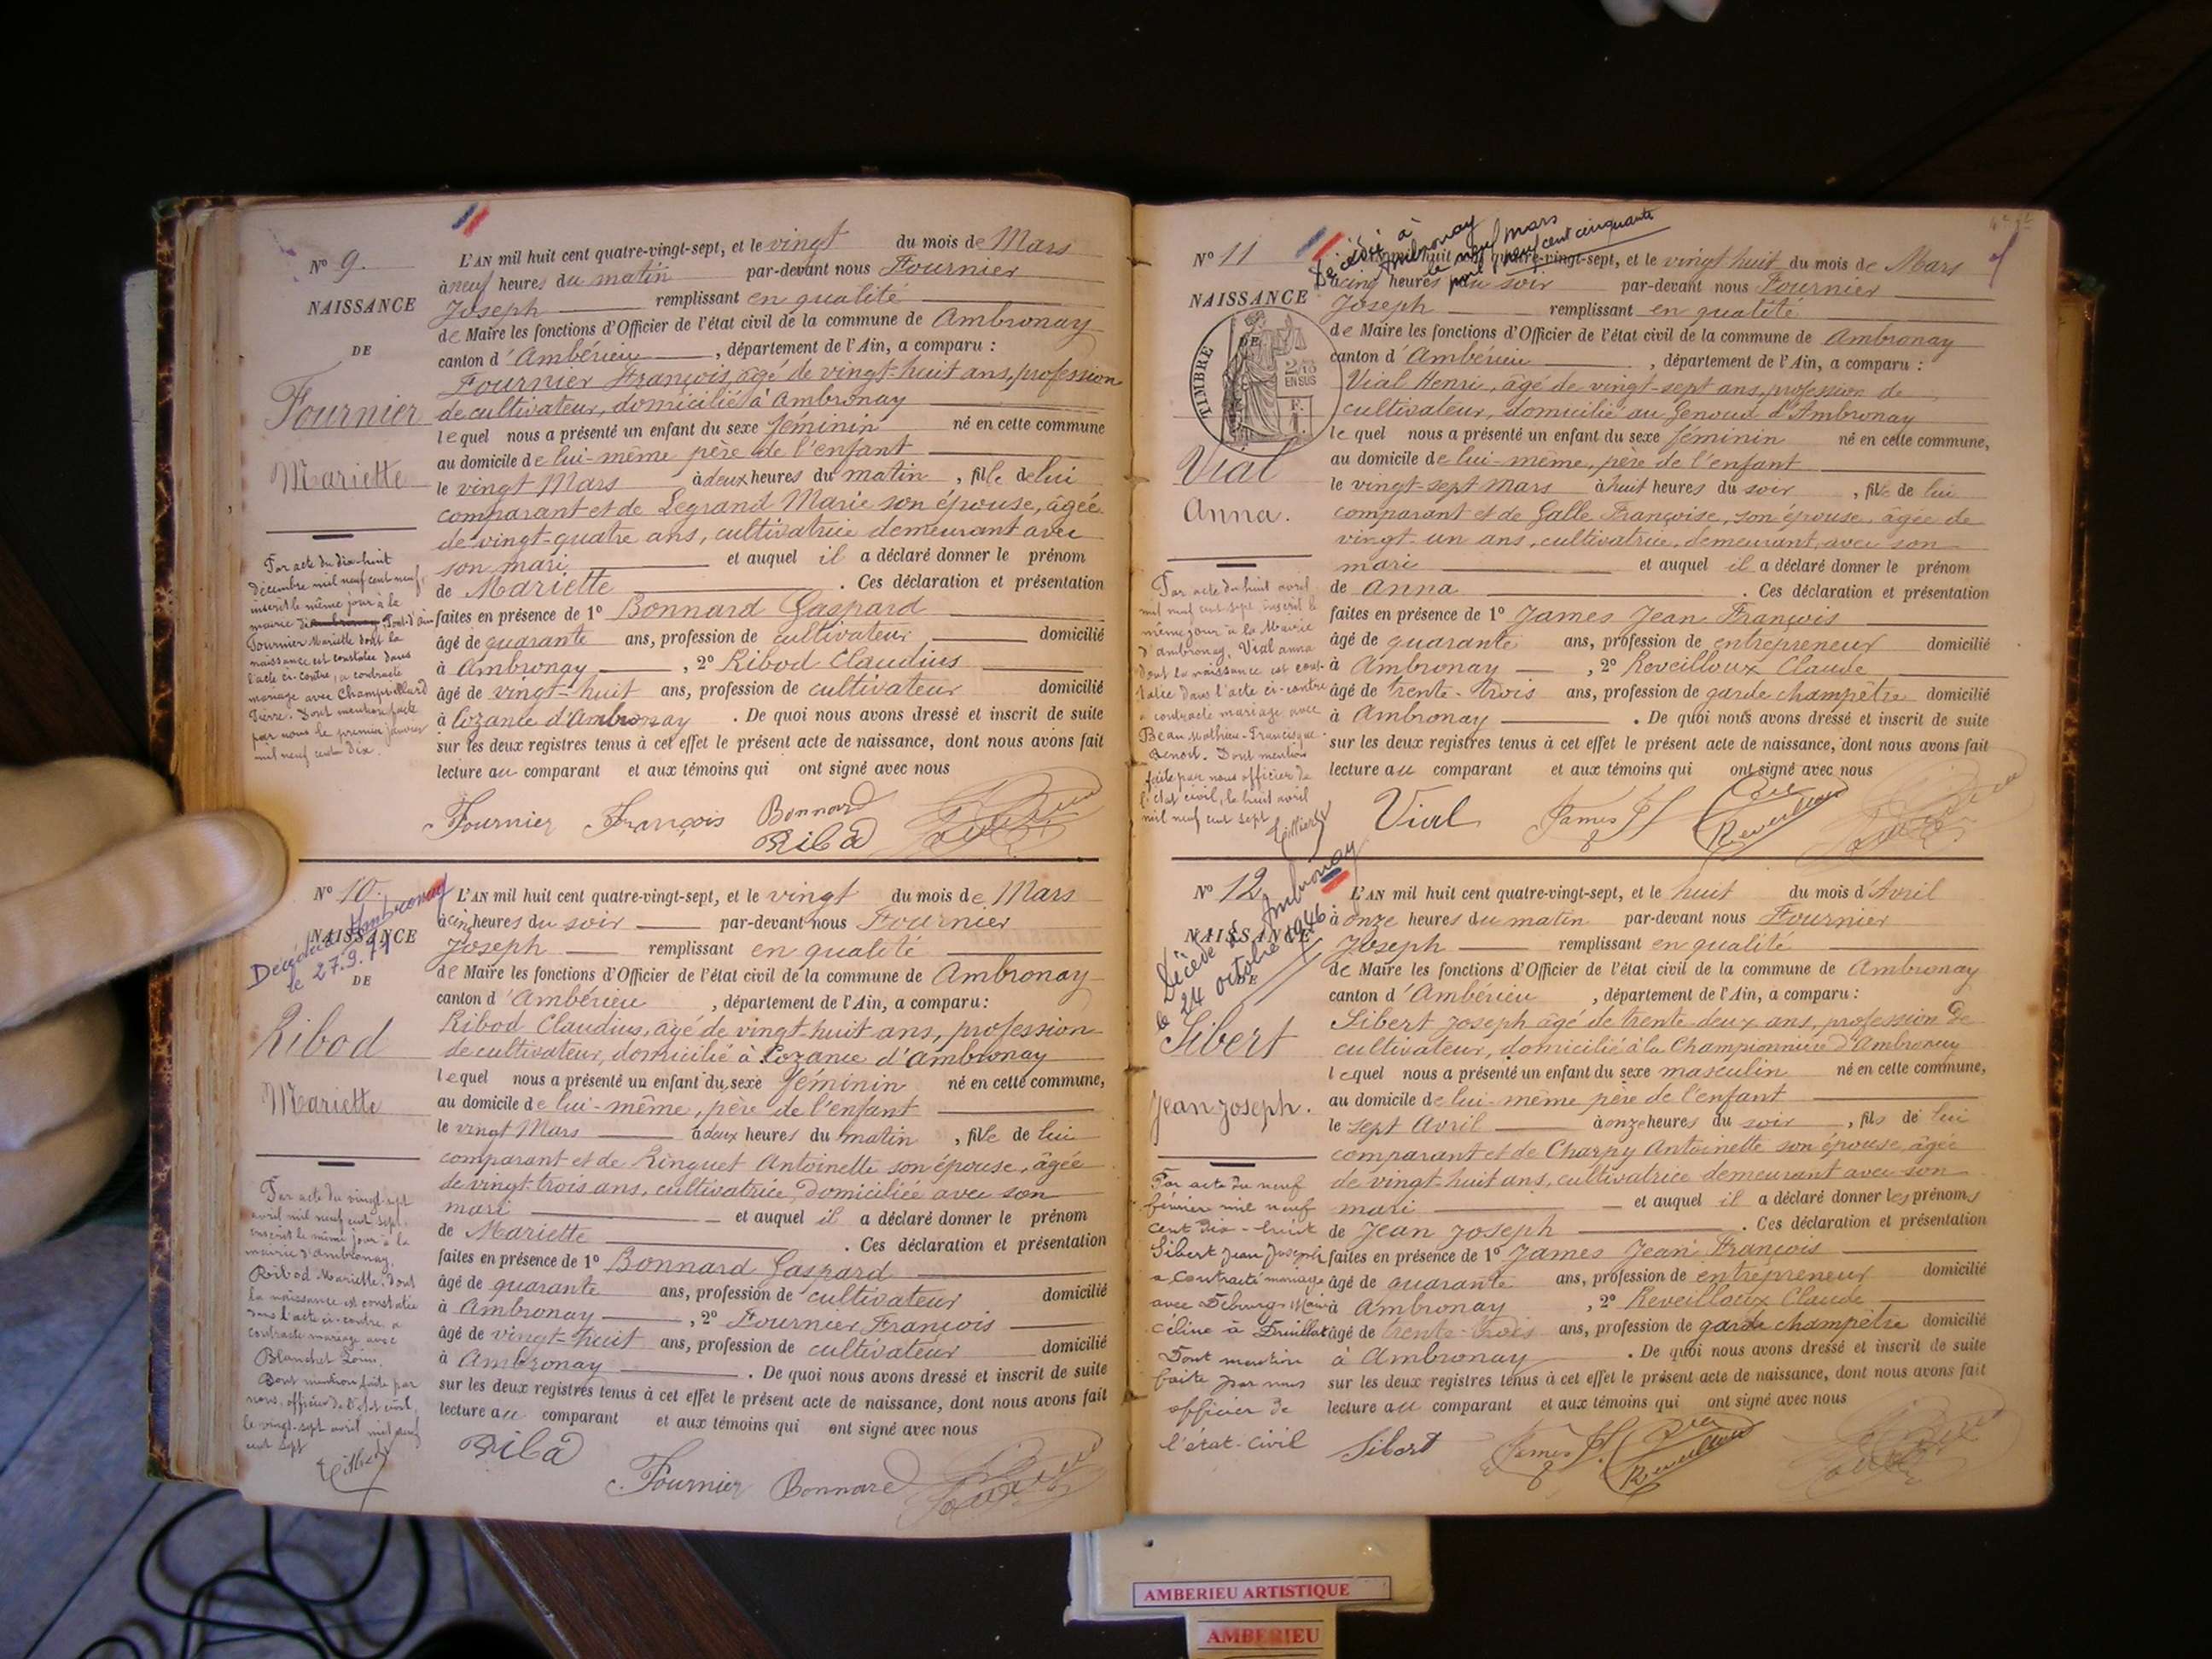 Nº 9.
NAISSANCE
DE
Fournier
Mariette
Par acte du dix-huit
décembre mil neuf cent neuf,
inscrit le même jour à la
mairie de Pont-d'Ain
Fournier Mariette dont la
naissance est constatée dans
l'acte ci-contre, a contracté
mariage avec Champvillard
Pierre. Dont mention faite
par nous le premier janvier
mil neuf cent dix.
L'AN mil huit cent quatre-vingt-sept, et le vingt du mois de Mars
à neuf heures du matin par-devant nous Fournier
Joseph remplissant en qualité
de Maire les fonctions d'Officier de l'état civil de la commune de Ambronay
canton d'Ambérieu, département de l'Ain, a comparu :
Fournier François, âgé de vingt-huit ans, profession
de cultivateur, domicilié à Ambronay
lequel nous a présenté un enfant du sexe féminin né en cette commune
au domicile de lui-même père de l'enfant
le vingt Mars à deux heures du matin, fille de lui
comparant et de Legrand Marie son épouse, âgée
de vingt-quatre ans, cultivatrice demeurant avec
son mari et auquel il a déclaré donner le prénom
de Mariette. Ces déclaration et présentation
faites en présence de 1º Bonnard Gaspard
âgé de quarante ans, profession de cultivateur domicilié
à Ambronay, 2º Ribod Claudius
âgé de vingt-huit ans, profession de cultivateur domicilié
à Cozance d'Ambronay. De quoi nous avons dressé et inscrit de suite
sur les deux registres tenus à cet effet le présent acte de naissance, dont nous avons fait
lecture au comparant et aux témoins qui ont signé avec nous
Fournier François Bonnard
Ribod
Nº 10.
Décédée à Ambronay
le 27.9.71
NAISSANCE
DE
Ribod
Mariette
Par acte du vingt-sept
avril mil neuf cent sept,
inscrit le même jour à la
mairie d'Ambronay,
Ribod Mariette, dont
la naissance est constatée
dans l'acte ci-contre, a
contracté mariage avec
Blanchet Louis.
Dont mention faite par
nous, officier de l'état civil,
le vingt-sept avril mil neuf
cent sept
L'AN mil huit cent quatre-vingt-sept, et le vingt du mois de Mars
à cinq heures du soir par-devant nous Fournier
Joseph remplissant en qualité
de Maire les fonctions d'Officier de l'état civil de la commune de Ambronay
canton d'Ambérieu, département de l'Ain, a comparu :
Ribod Claudius, âgé de vingt-huit ans, profession
de cultivateur, domicilié à Cozance d'Ambronay
lequel nous a présenté un enfant du sexe féminin né en cette commune,
au domicile de lui-même, père de l'enfant
le vingt Mars à deux heures du matin, fille de lui
comparant et de Ringuet Antoinette son épouse, âgée
de vingt-trois ans, cultivatrice, domiciliée avec son
mari et auquel il a déclaré donner le prénom
de Mariette. Ces déclaration et présentation
faites en présence de 1º Bonnard Gaspard
âgé de quarante ans, profession de cultivateur domicilié
à Ambronay, 2º Fournier François
âgé de vingt-huit ans, profession de cultivateur domicilié
à Ambronay. De quoi nous avons dressé et inscrit de suite
sur les deux registres tenus à cet effet le présent acte de naissance, dont nous avons fait
lecture au comparant et aux témoins qui ont signé avec nous
Ribod
Fournier Bonnard
Nº 11
Décédée à
Ambronay
le neuf mars
mil neuf cent cinquante
NAISSANCE
DE
TIMBRE
2/10
EN SUS
Vial
Anna.
Par acte du huit avril
mil neuf cent sept inscrit le
même jour à la Mairie
d'Ambronay, Vial Anna
dont la naissance est cons-
tatée dans l'acte ci-contre
a contracté mariage avec
Beau Mathieu-Francisque-
Benoit. Dont mention
faite par nous officier de
l'état civil, le huit avril
mil neuf cent sept
L'AN mil huit cent quatre-vingt-sept, et le vingt huit du mois de Mars
à cinq heures du soir par-devant nous Fournier
Joseph remplissant en qualité
de Maire les fonctions d'Officier de l'état civil de la commune de Ambronay
canton d'Ambérieu, département de l'Ain, a comparu :
Vial Henri, âgé de vingt-sept ans, profession de
cultivateur, domicilié au Genoud d'Ambronay
lequel nous a présenté un enfant du sexe féminin né en cette commune,
au domicile de lui-même, père de l'enfant
le vingt-sept Mars à huit heures du soir, fille de lui
comparant et de Galle Françoise, son épouse, âgée de
vingt-un ans, cultivatrice, demeurant avec son
mari et auquel il a déclaré donner le prénom
de Anna. Ces déclaration et présentation
faites en présence de 1º James Jean François
âgé de quarante ans, profession de entrepreneur domicilié
à Ambronay, 2º Reveilloux Claude
âgé de trente-trois ans, profession de garde champêtre domicilié
à Ambronay. De quoi nous avons dressé et inscrit de suite
sur les deux registres tenus à cet effet le présent acte de naissance, dont nous avons fait
lecture au comparant et aux témoins qui ont signé avec nous
Vial James Reveilloux
Nº 12
Décédé à Ambronay
le 24 octobre 1946.
NAISSANCE
DE
Sibert
Jean Joseph.
Par acte du neuf
février mil neuf
cent dix-huit
Sibert Jean Joseph
a contracté mariage
avec Debourg Marie
Céline à Druillat
Dont mention
faite par nous
officier de
l'état-civil
L'AN mil huit cent quatre-vingt-sept, et le huit du mois d'Avril
à onze heures du matin par-devant nous Fournier
Joseph remplissant en qualité
de Maire les fonctions d'Officier de l'état civil de la commune de Ambronay
canton d'Ambérieu, département de l'Ain, a comparu :
Sibert Joseph âgé de trente-deux ans, profession de
cultivateur, domicilié à la Championnière d'Ambronay
lequel nous a présenté un enfant du sexe masculin né en cette commune,
au domicile de lui-même père de l'enfant
le sept Avril à onze heures du soir, fils de lui
comparant et de Charpy Antoinette son épouse âgée
de vingt-huit ans, cultivatrice demeurant avec son
mari et auquel il a déclaré donner les prénoms
de Jean Joseph. Ces déclaration et présentation
faites en présence de 1º James Jean François
âgé de quarante ans, profession de entrepreneur domicilié
à Ambronay, 2º Reveilloux Claude
âgé de trente-trois ans, profession de garde champêtre domicilié
à Ambronay. De quoi nous avons dressé et inscrit de suite
sur les deux registres tenus à cet effet le présent acte de naissance, dont nous avons fait
lecture au comparant et aux témoins qui ont signé avec nous
Sibert James Reveilloux
AMBERIEU ARTISTIQUE
AMBERIEU